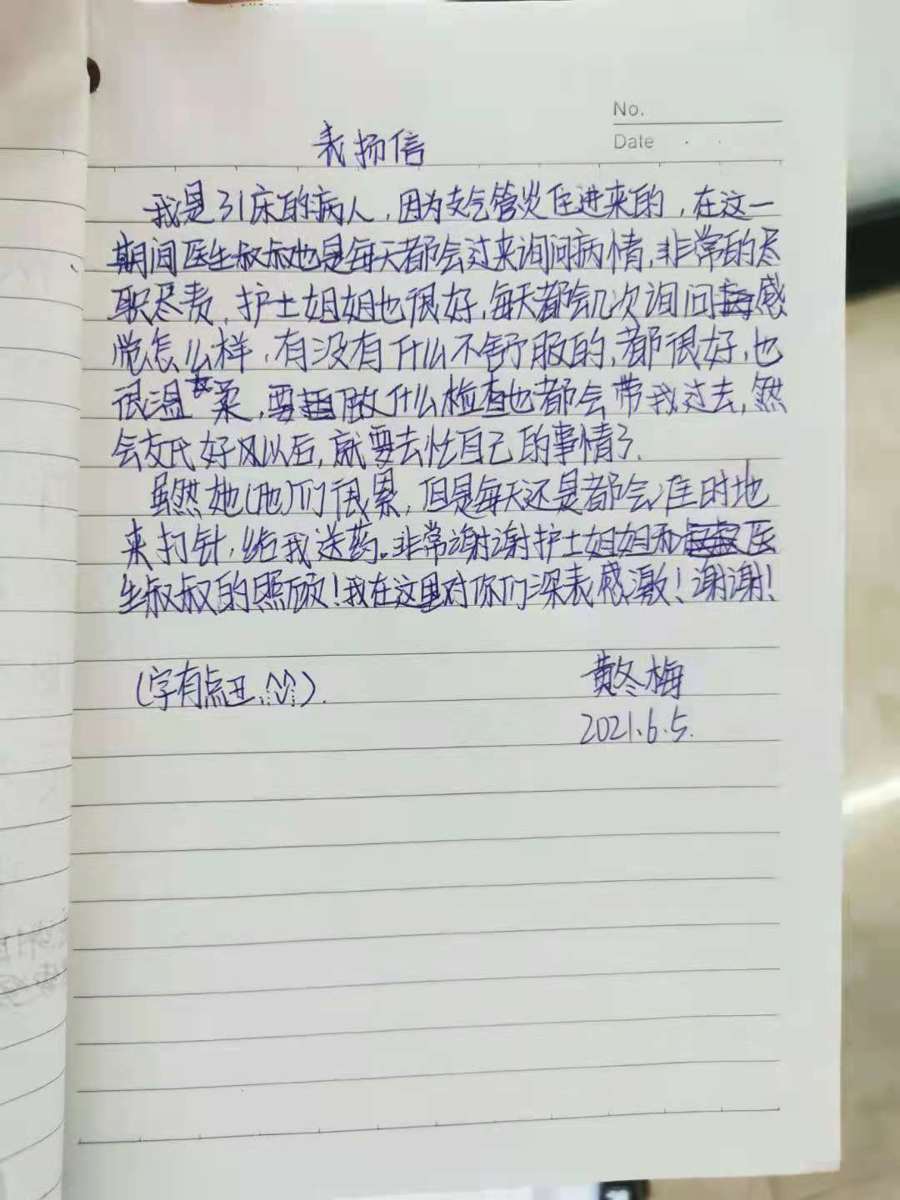 No.
Date
表扬信
我是31床的病人，因为支气管炎住进来的，在这一
期间医生叔叔也是每天都会过来询问病情，非常的尽
职尽责，护士姐姐也很好，每天都会几次询问感
觉怎么样，有没有什么不舒服的，都很好，也
很温柔，要做什么检查也都会带我过去，然
会交代好风以后，就要去忙自己的事情了.
虽然她(他)们很累，但是每天还是都会准时地
来打针，给我送药。非常谢谢护士姐姐和医
生叔叔的照顾！我在这里对你们深表感激！谢谢！
(字有点丑).
黄冬梅
2021.6.5.